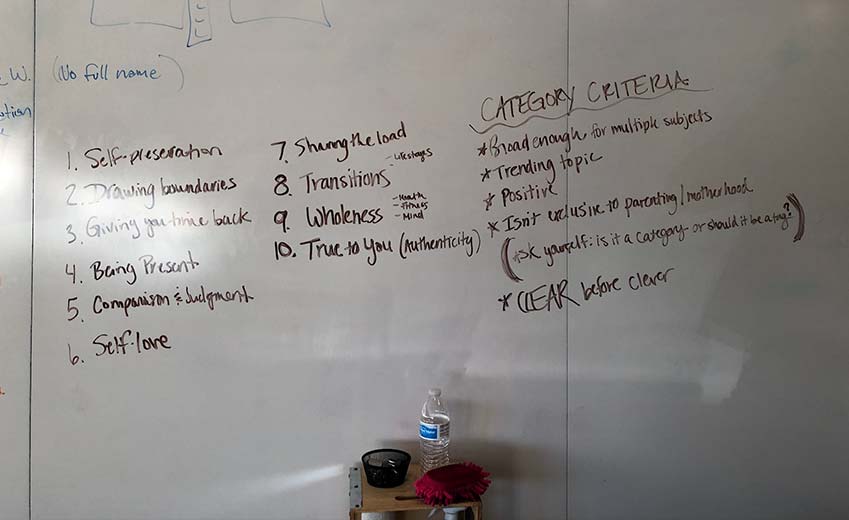 W.
(No full name)
1. Self-preservation
2. Drawing boundaries
3. Giving you time back
4. Being Present
5. Comparison & Judgment
6. Self-love
7. Sharing the load
8. Transitions - Lifestages
9. Wholeness - Health - Fitness - Mind
10. True to You (Authenticity)
CATEGORY CRITERIA:
* Broad enough for multiple subjects
* Trending topic
* Positive
* Isn't exclusive to parenting/motherhood
(*ask yourself: is it a category or should it be a tag?)
* CLEAR before clever